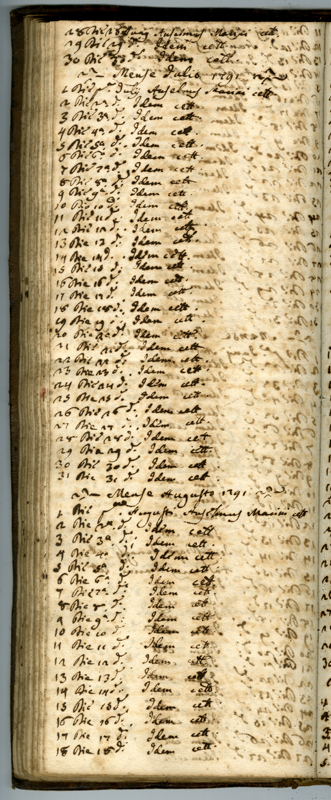 28 Die 28 Anselmus Marini cett
29 Die 29 d. Idem cett
30 Die d. Idem cett.
Mense Julio 1791
1 Die July Anselmus Marini cett
2 Die 2ª d. Idem cett
3 Die 3ª d. Idem cett
4 Die 4ª d. Idem cett.
5 Die 5ª d. Idem cett.
6 Die 6ª d. Idem cett
7 Die 7ª d. Idem cett
8 Die 8ª d. Idem cett
9 Die 9ª d. Idem cett
10 Die 10 d. Idem cett
11 Die 11 d. Idem cett
12 Die 12 d. Idem cett
13 Die 12 d. Idem cett.
14 Die 14 d. Idem cett.
15 Die d. Idem cett
16 Die 16 d. Idem cett
17 Die 17 d. Idem cett
18 Die 18 d. Idem cett
19 Die 19 d. Idem cett
20 Die d. Idem cett
21 Die 21 d. Idem cett
22 Die 22 d. Idem cett
23 Die 23 d. Idem cett
24 Die 24 d. Idem cett
25 Die d. Idem cett
26 Die 26 d. Idem cett
27 Die 27 d. Idem cett
28 Die 28 d. Idem cett
29 Die 29 d. Idem cett.
30 Die 30 d. Idem cett
31 Die 31 d. Idem cett
Mense Augusto 1791
1 Die Augusti Anselmus Marini cett
2 Die 2ª d. Idem cett
3 Die 3ª d. Idem cett
4 Die d. Idem cett
5 Die 5ª d. Idem cett
6 Die 6ª d. Idem cett
7 Die 7ª d. Idem cett
8 Die 8ª d. Idem cett
9 Die 9ª d. Idem cett
10 Die 10 d. Idem cett
11 Die 11 d. Idem cett
12 Die 12 d. Idem cett
13 Die 13 d. Idem cett
14 Die 14 d. Idem cett
15 Die 15 d. Idem cett
16 Die 16 d. Idem cett.
17 Die 17 d. Idem cett
18 Die 18 d. Idem cett